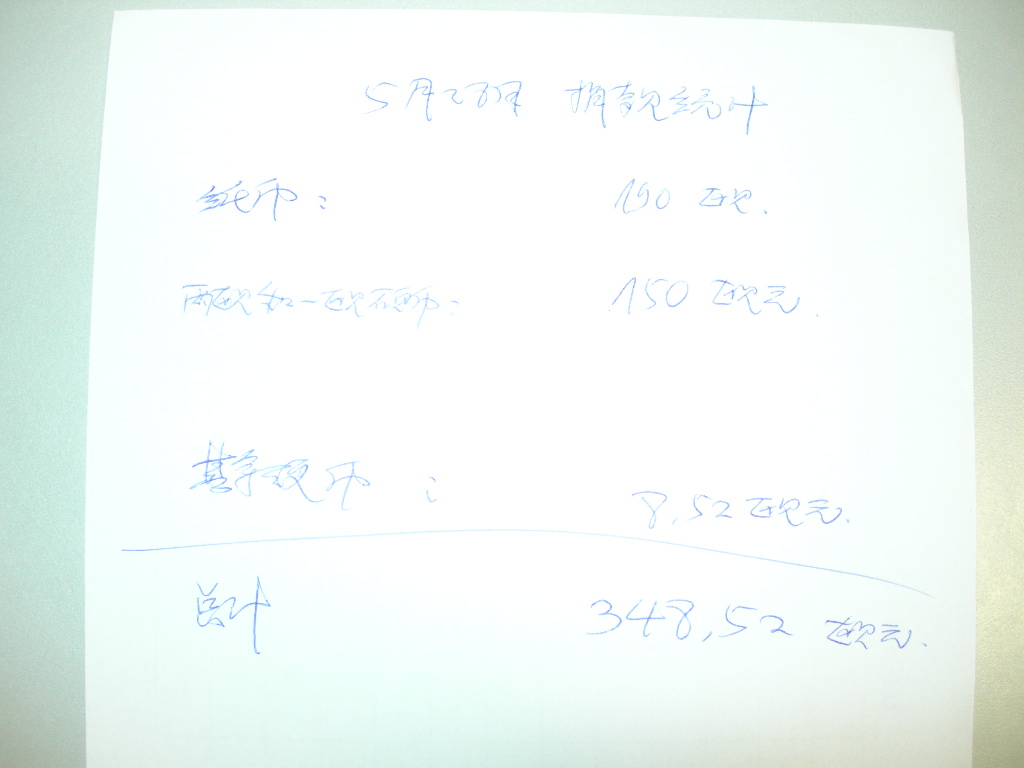 5月 捐款统计
纸币: 190 欧.
两欧和一欧硬币: 150 欧元.
其余硬币 : 8,52 欧元.
总计 348,52 欧元.